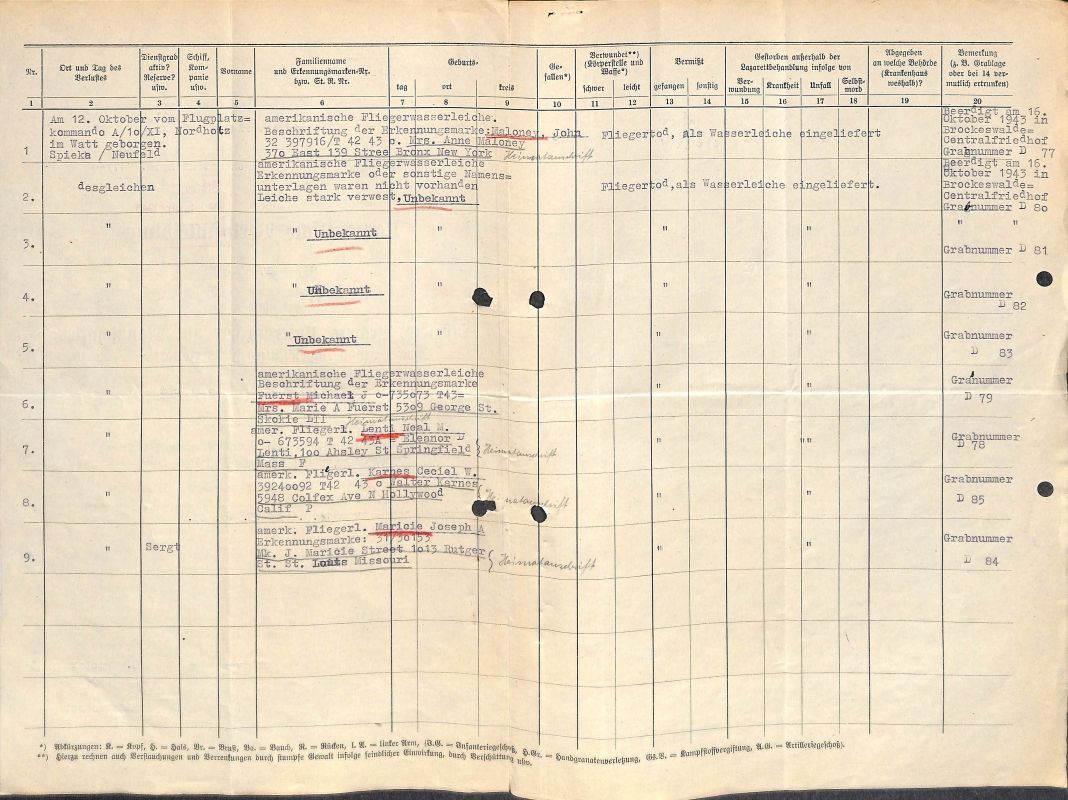 Nr.
Ort und Tag des Verlustes
Dienstgrad aktiv? Reserve? usw.
Schiff, Kompanie usw.
Vorname
Familienname und Erkennungsmarken-Nr. bzw. St. R. Nr.
Geburts-
tag
ort
kreis
Gefallen*)
Verwundet**) (Körperstelle und Waffe*)
schwer
leicht
Vermißt
gefangen
sonstig
Gestorben außerhalb der Lazarettbehandlung infolge von
Verwundung
Krankheit
Unfall
Selbstmord
Abgegeben an welche Behörde (Krankenhaus weshalb)?
Bemerkung (z. B. Grablage oder bei 14 vermutlich ertrunken)
1 2 3 4 5 6 7 8 9 10 11 12 13 14 15 16 17 18 19 20
1
Am 12. Oktober vom Flugplatz=
kommando A/1o/XI, Nordholz
im Watt geborgen.
Spieka / Neufeld
amerikanische Fliegerwasserleiche.
Beschriftung der Erkennungsmarke:Maloney, John
32 397916/T 42 43 o. Mrs. Anne Maloney
37o East 139 Stree Bronx New York Heimatanschrift
Fliegertod, als Wasserleiche eingeliefert
Beerdigt am 16.
Oktober 1943 in
Brockeswalde=
Centralfriedhof
Grabnummer D 77
2.
desgleichen
amerikanische Fliegerwasserleiche
Erkennungsmarke oder sonstige Namens=
unterlagen waren nicht vorhanden
Leiche stark verwest,Unbekannt
Fliegertod,als Wasserleiche eingeliefert.
Beerdigt am 16.
Oktober 1943 in
Brockeswalde=
Centralfriedhof
Grabnummer D 8o
3.
" " Unbekannt " " " " "
Grabnummer D 81
4.
" " Unbekannt " " "
Grabnummer
D 82
5.
" " Unbekannt " " "
Grabnummer
D 83
6.
"
amerikanische Fliegerwasserleiche
Beschriftung der Erkennungsmarke
Fuerst Michael J o-735o73 T43=
Mrs. Marie A Fuerst 53o9 George St.
Skokie Ill Heimatanschrift
" "
Grabnummer
D 79
7.
"
amer. Fliegerl. Lenti Neal M.
o- 673594 T 42 43A Eleanor D
Lenti,1oo Ahsley St Springfield
Mass P
Heimatanschrift
" ""
Grabnummer
D 78
8.
"
amerk. Fligerl. Karnes Ceciel W.
3924oo92 T42 43 o Walter Karnes
5948 Colfex Ave N Hollywood
Calif P
Heimatanschrift
" "
Grabnummer
D 85
9.
" Sergt
amerk. Fliegerl. Maricie Joseph A
Erkennungsmarke:
Mk. J. Maricie Street 1o13 Rutger
St. St. Louis Missouri
Heimatanschrift
" "
Grabnummer
D 84
*) Abkürzungen: K. = Kopf, H. = Hals, Br. = Brust, Ba. = Bauch, R. = Rücken, l. A. = linker Arm, (J.G. = Infanteriegeschoß, H.Gr. = Handgranatenverletzung, Gs.V. = Kampfstoffvergiftung, A.G. = Artilleriegeschoß).
**) Hierzu rechnen auch Verstauchungen und Verrenkungen durch stumpfe Gewalt infolge feindlicher Einwirkung, durch Verschüttung usw.